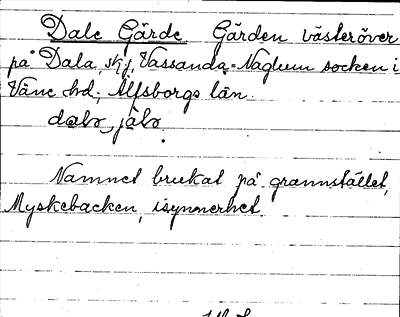 Dale Gärde Gärden västeröver
på Dala, skj, Vassanda-Naglum socken i
Väne hd, Älfsborgs län.
Namnet brukat på grannstället,
Myskebacken, isynnerhet.